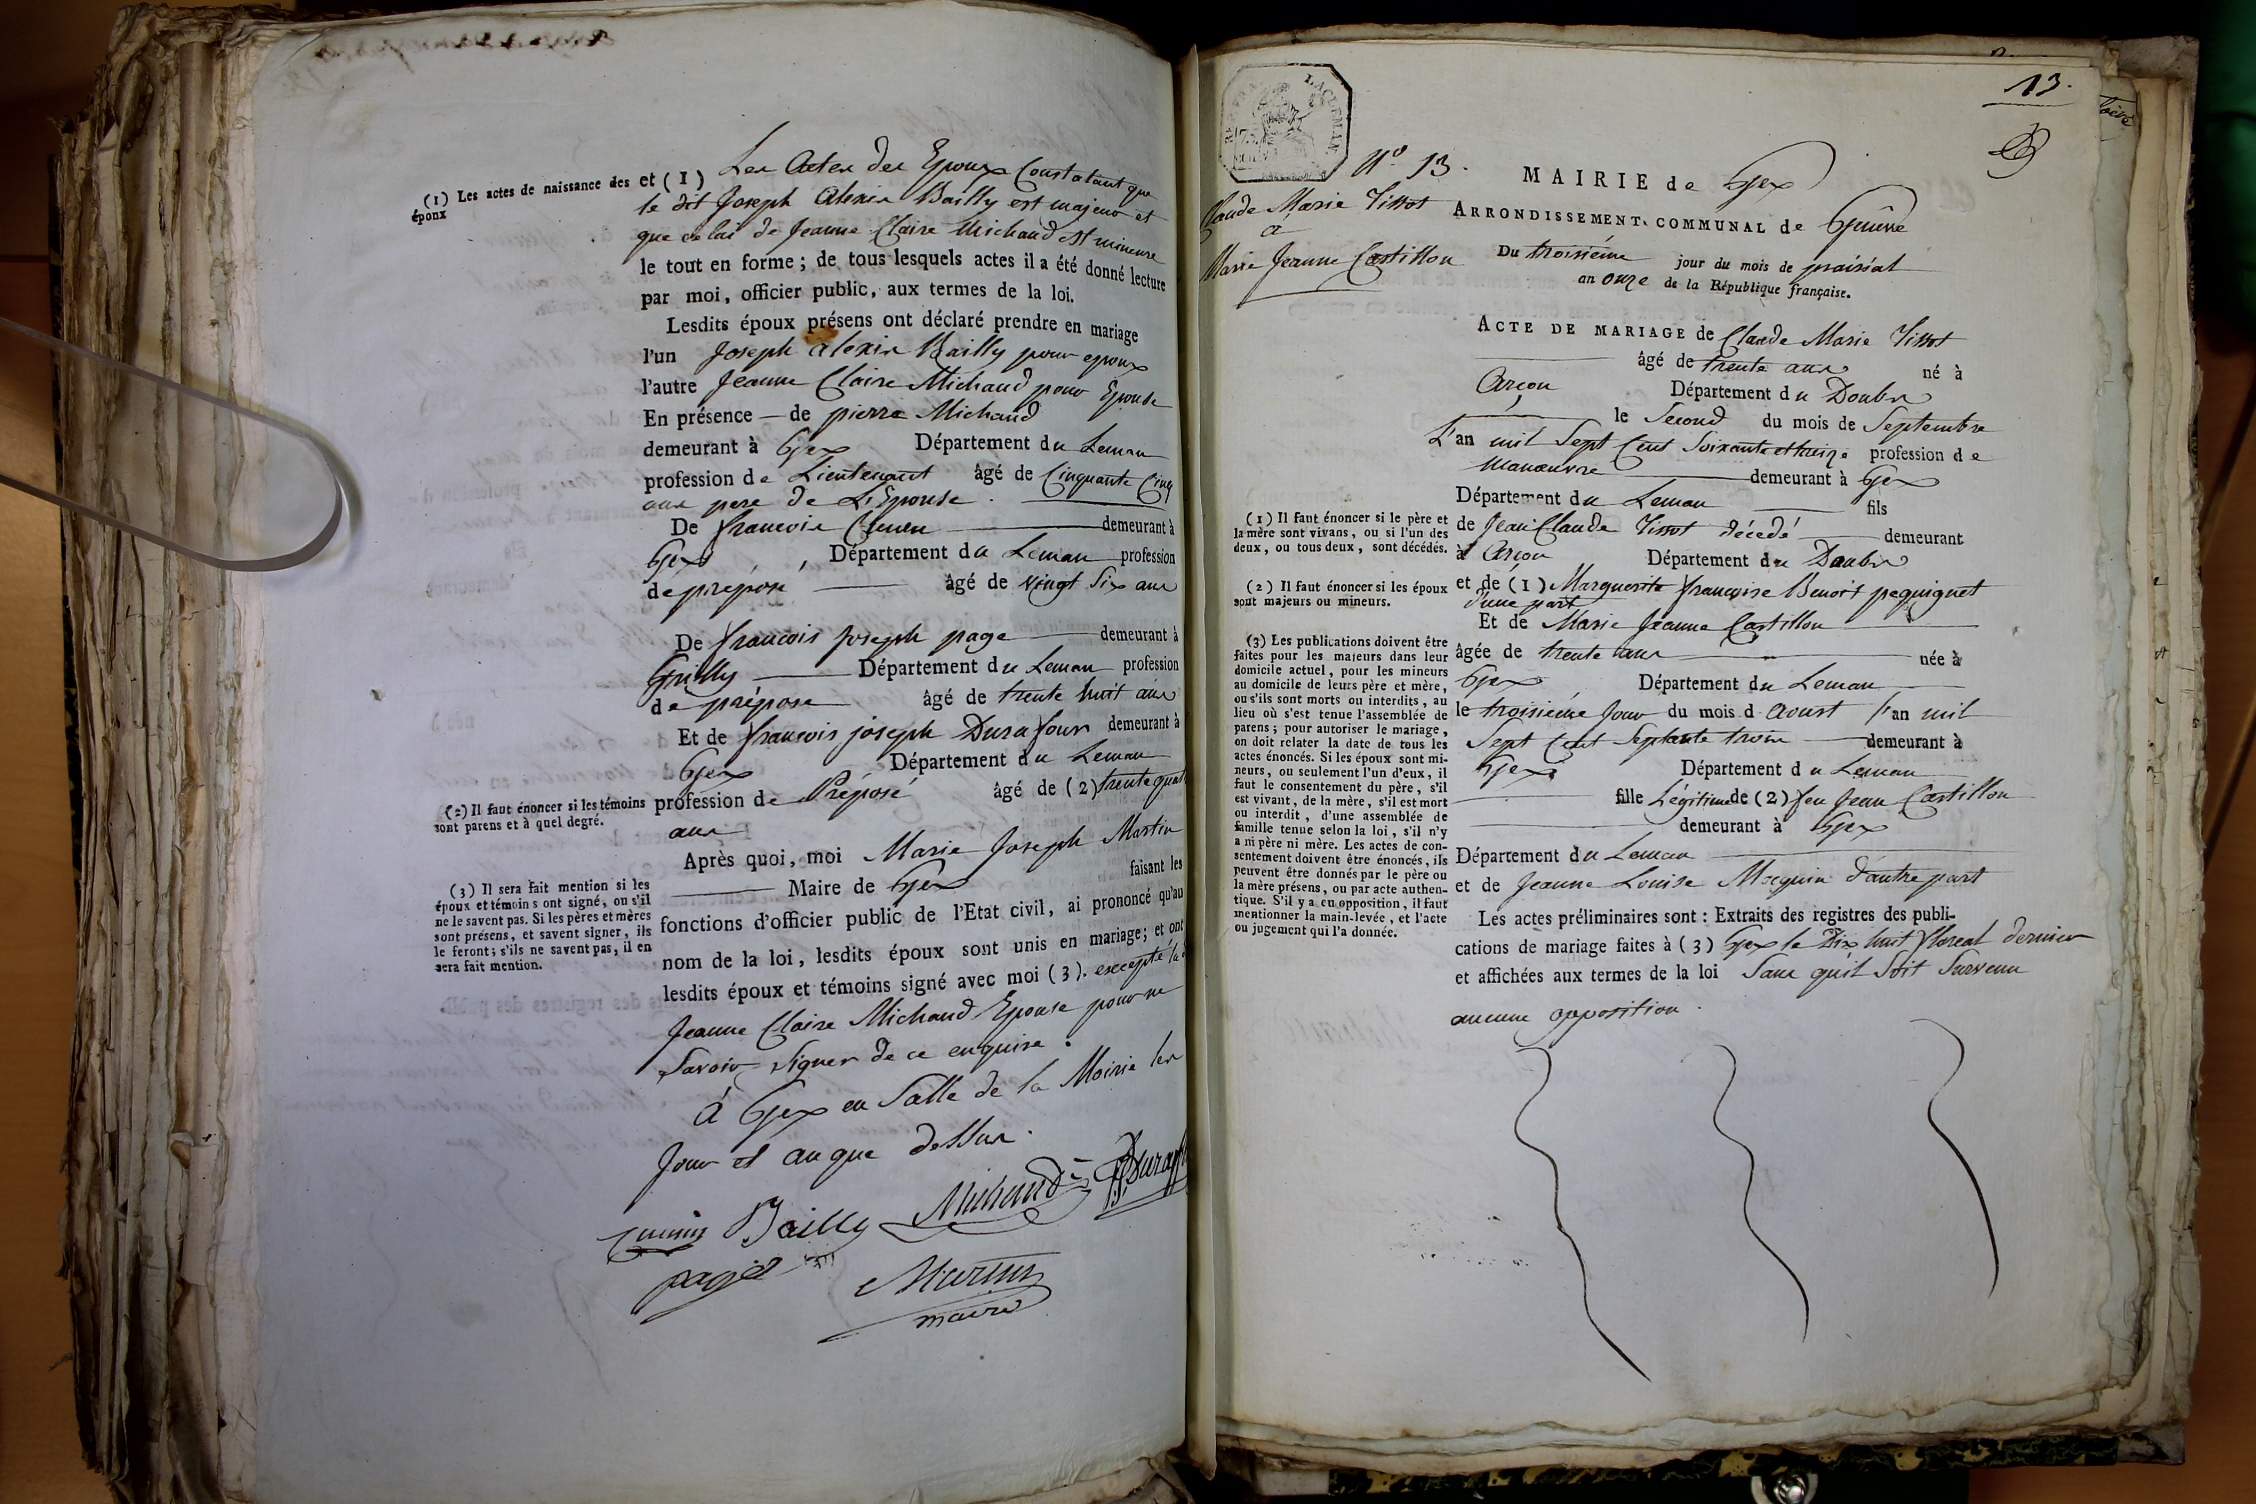 (1) Les actes de naissance des
époux
et (1) Les Actes des Epoux Constatant que
le dit Joseph Alexis Bailly est majeur et
que celui de Jeanne Claire Michaud est mineure
le tout en forme ; de tous lesquels actes il a été donné lecture
par moi, officier public, aux termes de la loi.
Lesdits époux présens ont déclaré prendre en mariage
l'un Joseph alexis Bailly pour epoux
l'autre Jeanne Claire Michaud pour Epouse
En présence — de pierre Michaud
demeurant à Gex Département du Leman
profession de Lieutenant âgé de Cinquante Cinq
ans pere de L'Epouse .
De francois demeurant à
Gex , Département du Leman profession
de préposé âgé de vingt Six ans
De francois Joseph page demeurant à
Grilly Département du Leman profession
de préposé âgé de trente huit ans
Et de francois joseph Durafour demeurant à
Gex Département du Leman
(2) Il faut énoncer si les témoins
sont parens et à quel degré.
profession de Préposé âgé de (2) trente quat
ans
Après quoi, moi Marie Joseph Martin
Maire de Gex faisant les
(3) Il sera fait mention si les
époux et témoins ont signé, ou s'il
ne le savent pas. Si les pères et mères
sont présens, et savent signer, ils
le feront ; s'ils ne savent pas, il en
sera fait mention.
fonctions d'officier public de l'Etat civil, ai prononcé qu'au
nom de la loi, lesdits époux sont unis en mariage ; et ont
lesdits époux et témoins signé avec moi (3). excepté la
Jeanne Claire Michaud Epouse pour ne
Savoir Signer de ce enquise .
A Gex en Salle de la Mairie les
Jour et an que dessus .
Bailly Michaud
Martin
maire
13.
N° 13.
Claude Marie Tissot
a
Marie Jeanne Castillon
MAIRIE de Gex
ARRONDISSEMENT COMMUNAL de Genève
Du troisième jour du mois de prairial
an onze de la République française.
ACTE DE MARIAGE de Claude Marie Tissot
âgé de trente ans né à
Arçon Département du Doubs
le Second du mois de Septembre
L'an mil Sept Cent Soixante et treize profession de
Manœuvre demeurant à Gex
Département du Leman fils
(1) Il faut énoncer si le père et
la mère sont vivans, ou si l'un des
deux, ou tous deux, sont décédés.
de Jean Claude Tissot décédé demeurant
à Arçon Département du Doubs
(2) Il faut énoncer si les époux
sont majeurs ou mineurs.
et de (1) Marguerite françoise Benoit peguignet
d'une part
Et de Marie Jeanne Castillon
(3) Les publications doivent être
faites pour les majeurs dans leur
domicile actuel, pour les mineurs
au domicile de leurs père et mère,
ou s'ils sont morts ou interdits, au
lieu où s'est tenue l'assemblée de
parens ; pour autoriser le mariage,
on doit relater la date de tous les
actes énoncés. Si les époux sont mi-
neurs, ou seulement l'un d'eux, il
faut le consentement du père, s'il
est vivant, de la mère, s'il est mort
ou interdit, d'une assemblée de
famille tenue selon la loi, s'il n'y
a ni père ni mère. Les actes de con-
sentement doivent être énoncés, ils
peuvent être donnés par le père ou
la mère présens, ou par acte authen-
tique. S'il y a eu opposition, il faut
mentionner la main-levée, et l'acte
ou jugement qui l'a donnée.
âgée de trente ans née à
Gex Département du Leman
le troisième Jour du mois d Aoust l'an mil
Sept Cent Septante trois demeurant à
Gex Département du Leman
fille Légitime de (2) feu Jean Castillon
demeurant à Gex
Département du Leman
et de Jeanne Louise d'autre part
Les actes préliminaires sont : Extraits des registres des publi-
cations de mariage faites à (3) Gex le Dix huit floreal dernier
et affichées aux termes de la loi Sans qu'il Soit Survenu
aucune opposition .